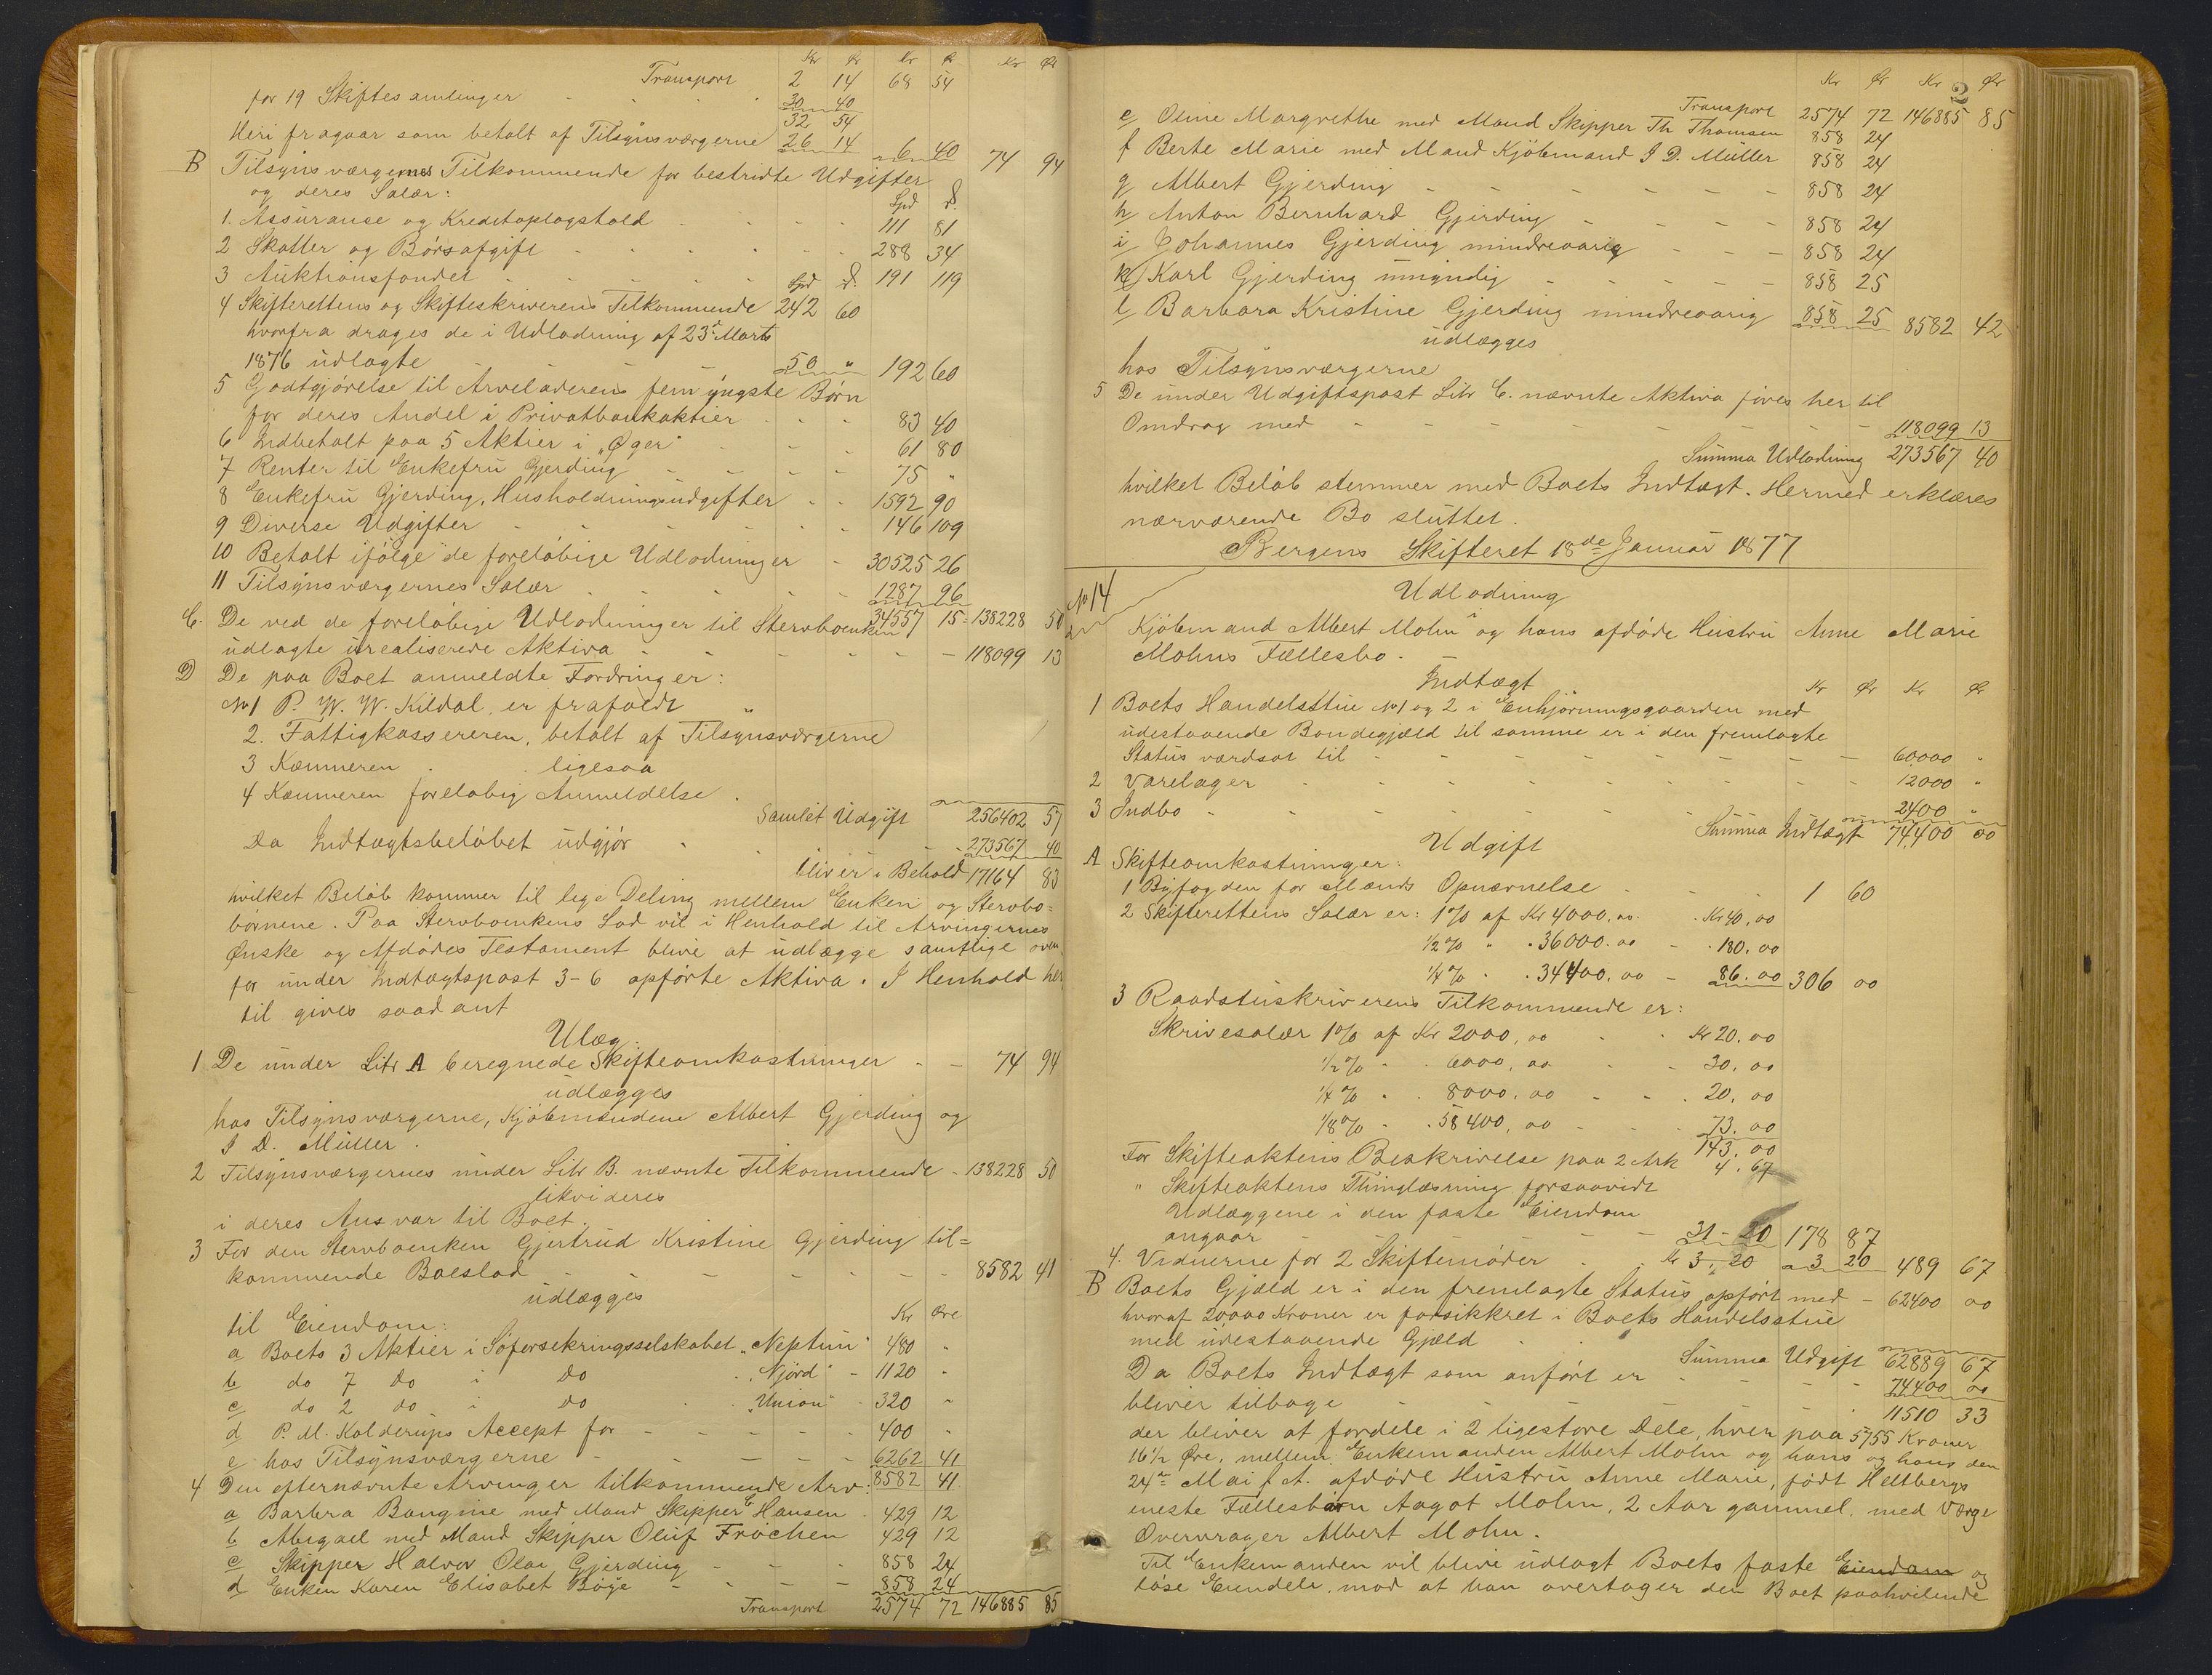 Kr Ør Kr Ø Kr Ør
Transport 2 14 68 54
for 19 Skiftesamlinger 30 40
32 54
Heri fragaar som betalt af Tilsynsværgerne 26 14 6 40 74 94
B Tilsynsværgernes Tilkommende for bestridte Udgifter
og deres Salær: Spd
1. Assurance og Kreditoplagstold 111 81
2 Skatter og Börsafgift 288 34
3 Auktionsfondet Spd 191 119
4 Skifterettens og Skifteskriverens Tilkommende 242 60
hvorfra drages de i Udlodning af 23d Marts
1876 udlagte 50 " 192 60
5 Godtgjörelse til Arveladerens fem yngste Börn
for deres Andel i Privatbankaktier 83 40
6 Indbetalt paa 5 Aktier i „Øger" 61 80
7 Renter til Enkefru Gjerding 75 "
8 Enkefru Gjerding, Husholdningsudgifter 1592 90
9 Diverse Udgifter 146 109
10 Betalt ifölge de forelöbige Udlodninger 30525 26
11 Tilsynsværgernes Salær 1287 96
34557 15 = 138228 50
C. De ved de forelöbige Udlodninger til Stervboenken
udlagte urealiserede Aktiva 118099 13
D De paa Boet anmeldte Fordringer:
No 1 P. W. W. Kildal, er frafaldt "
2. Fattigkassereren, betalt af Tilsynsværgerne
3 Kæmneren ligesaa
4 Kæmneren forelöbig Anmeldelse
Samlet Udgift 256402 57
Da Indtægtsbelöbet udgjör 273567 40
bliver i Behold 17164 83
hvilket Belöb kommer til lige Deling mellem Enken og Stervbo=
börnene. Paa Stervboenkens Lod vil i Henhold til Arvingernes
Ønske og Afdödes Testament blive at udlægge samtlige oven
for under Indtægtspost 3-6 opförte Aktiva. I Henhold her
til gives saadant
Ulæg:
1 De under Litr A beregnede Skifteomkostninger 74 94
udlægges
hos Tilsynsværgerne, Kjöbmændene Albert Gjerding og
I D. Müller.
2 Tilsynsværgernes under Litr B. nævnte Tilkommende 138228 50
likvideres
i deres Ansvar til Boet.
3 For den Stervboenken Gjertrud Kristine Gjerding til=
kommende Boeslod 8582 41
udlægges
til Eiendom: Kr Øre
a Boets 3 Aktier i Söforsekringsselskabet „Neptun" 480 "
b do 7 Do i Do „Njörd" 1120 "
c do 2 do i do „Union" 320 "
d P. M. Kolderups Accept for 400 "
e hos Tilsynsværgerne 6262 41
8582 41
4 Den efternævnte Arvinger tilkommende Arv:
a Barbra Bangine med Mand Skipper E Hansen 429 12
b Abigael med Mand Skipper Oluf Fröchen 429 12
c Skipper Halvor Olai Gjerding 858 24
d Enken Karen Elisabet Böge 858 24
Transport 2574 72 146885 85
2
Kr Ør Kr Ør
Transport 2574 72 146885 85
e Oline Margrethe med Mand Skipper Th Thomsen 858 24
f Berte Marie med Mand Kjöbmand I D. Müller 858 24
g Albert Gjerding 858 24
h Anton Bernhard Gjerding 858 24
i Johannes Gjerding mindreaarig 858 24
k Karl Gjerding umyndig 858 25
l Barbara Kristine Gjerding mindreaarig 858 25 8582 42
udlægges
hos Tilsynsværgerne
5 De under Udgiftspost Litr C. nævnte Aktiva föres her til
Omdrag med 118099 13
Summa Udlodning 273567 40
hvilket Belöb stemmer med Boets Indtægt. Hermed erklæres
nærværende Bo sluttet.
Bergens Skifteret 18de Januar 1877
No 14 Udlodning
i
Kjöbmand Albert Mohn og hans afdöde Hustru Anne Marie
Mohns Fællesbo.
Indtægt Kr Ør Kr Ør
1 Boets Handelsstue No 1 og 2 i Enhjörningsgaarden med
udestaaende Bondegjæld til samme er i den fremlagte
Status værdsat til 60000 "
2 Varelager 12000 "
3 Indbo 2400 "
Summa Indtægt 74,400 00
Udgift
A Skifteomkostninger:
1 Byfogden for Mænds Opnævnelse 1 60
2 Skifterettens Salær er: 1% af Kr 4000,00 Kr 40,00
1/2% " 36000.00 180.00
1/4% " 34400.00 86.00 306 00
3 Raadstuskriverens Tilkommende er:
Skrivesalær 1% af Kr 2000,00 Kr 20.00
1/2% 6000,00 30.00
1/4% 8000.00 20,00
1/8% 58400,00 73.00
143.00
For Skifteaktens Beskrivelse paa 2 Ark 4.67
" Skifteaktens Thinglæsning forsaavidt
Udlæggene i den faste Eiendom
angaar 31-20 178 87
4. Vidnerne for 2 Skiftemöder Kr 3,20 3 20 489 67
B Boets Gjæld er i den fremlagte Status opfört med 62400 00
hvoraf 20000 Kroner er forsikkret i Boets Handelsstue
med udestaaende Gjæld
Summa Udgift 62889 67
Da Boets Indtægt som anfört er 74,400 00
bliver tilbage 11510 33
der bliver at fordele i 2 ligestore Dele, hver paa 5755 Kroner
16 1/2 Øre, mellem Enkemanden Albert Mohn og hans og hans den
24de Mai f. A. afdöde Hustru Anne Marie, födt Heltbergs
eneste Fællesbarn Aagot Mohn, 2 Aar gammel, med Værge
Overvrager Albert Mohn.
Til Enkemanden vil blive udlagt Boets faste Eiendom og
löse Eiendele, mod at han overtager den Boet paahvilende